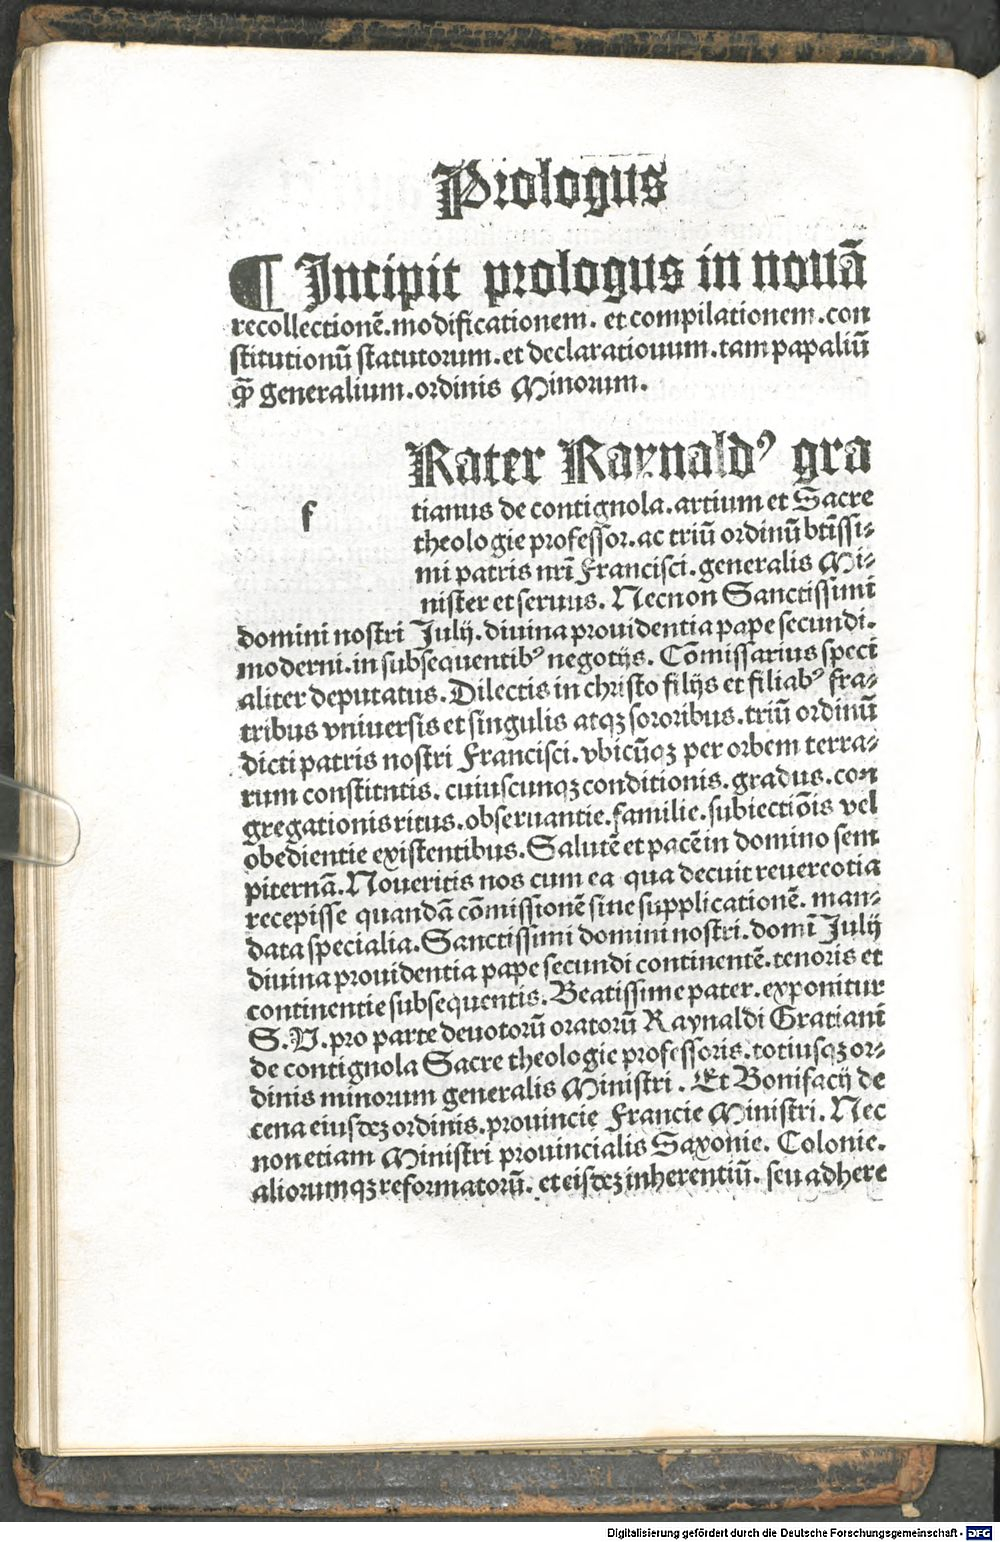 Prologus
¶ Incipit prologus in nouā
recollectionē.modificationem. et compilationem.con
stitutionū statutorum.et declaratiouum.tam papaliū
q̄ꝫ generalium.ordinis Minorum.
f
Rater Raynaldꝰ gra
tianus de contignola.artium et Sacre
theologie professor.ac triū ordinū btīssi⸗
mi patris nrī Francisci.generalis Mi⸗
nister et seruus. Necnon Sanctissimi
domini nostri Julij.diuina prouidentia pape secundi.
moderni.in subsequentibꝰ negotijs. Cōmissarius speci
aliter deputatus. Dilectis in christo filijs et filiabꝰ fra⸗
tribus vniuersis et singulis atqꝫ sororibus.triū ordinū
dicti patris nostri Francisci.vbicūqꝫ per orbem terra⸗
rum constitntis. cuiuscunqꝫ conditionis.gradus.con
gregationis ritus.obseruantie.familie.subiectiōis vel
obedientie existentibus.Salutē et pacē in domino sem
piternā.Noueritis nos cum ea qua decuit reuereotia
recepisse quandā cōmissionē siue supplicationē. man⸗
data specialia.Sanctissimi domini nostri.domī Julij
diuina prouidentia pape secundi continentē.tenoris et
continentie subsequentis. Beatissime pater.exponitur
S.V.pro parte deuotorū oratorū Raynaldi Gratiani
de contignola Sacre theologie professoris.totiusqꝫ or⸗
dinis minorum generalis Ministri. Et Bonifacij de
cena eiusdeꝫ ordinis.prouincie Francie Ministri. Nec
non etiam Ministri prouincialis Saxonie. Colonie.
aliorumqꝫ reformatorū. et eisdeꝫ inherentiū. seu adhere
Digitalisierung gefördert durch die Deutsche Forschungsgemeinschaft - DFG